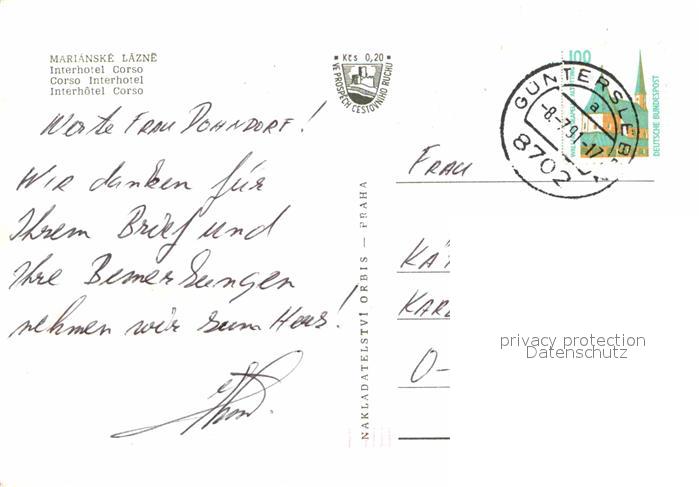 MARIÁNSKÉ LÁZNĚ
Interhotel Corso
Corso Interhotel
Interhôtel Corso
Kčs 0,20
VE PROSPĚCH CESTOVNÍHO RUCHU
100
DEUTSCHE BUNDESPOST
GÜNTERSLEB
a
-8.-7.91.-17
8702
Werte FRAU DOHNDORF!
Wir danken für
Ihrem Brief und
Ihre Bemerkungen
nehmen wir zum Herz!
NAKLADATELSTVÍ ORBIS — PRAHA
FRAU
KÄ
KARL
O-
privacy protection
Datenschutz